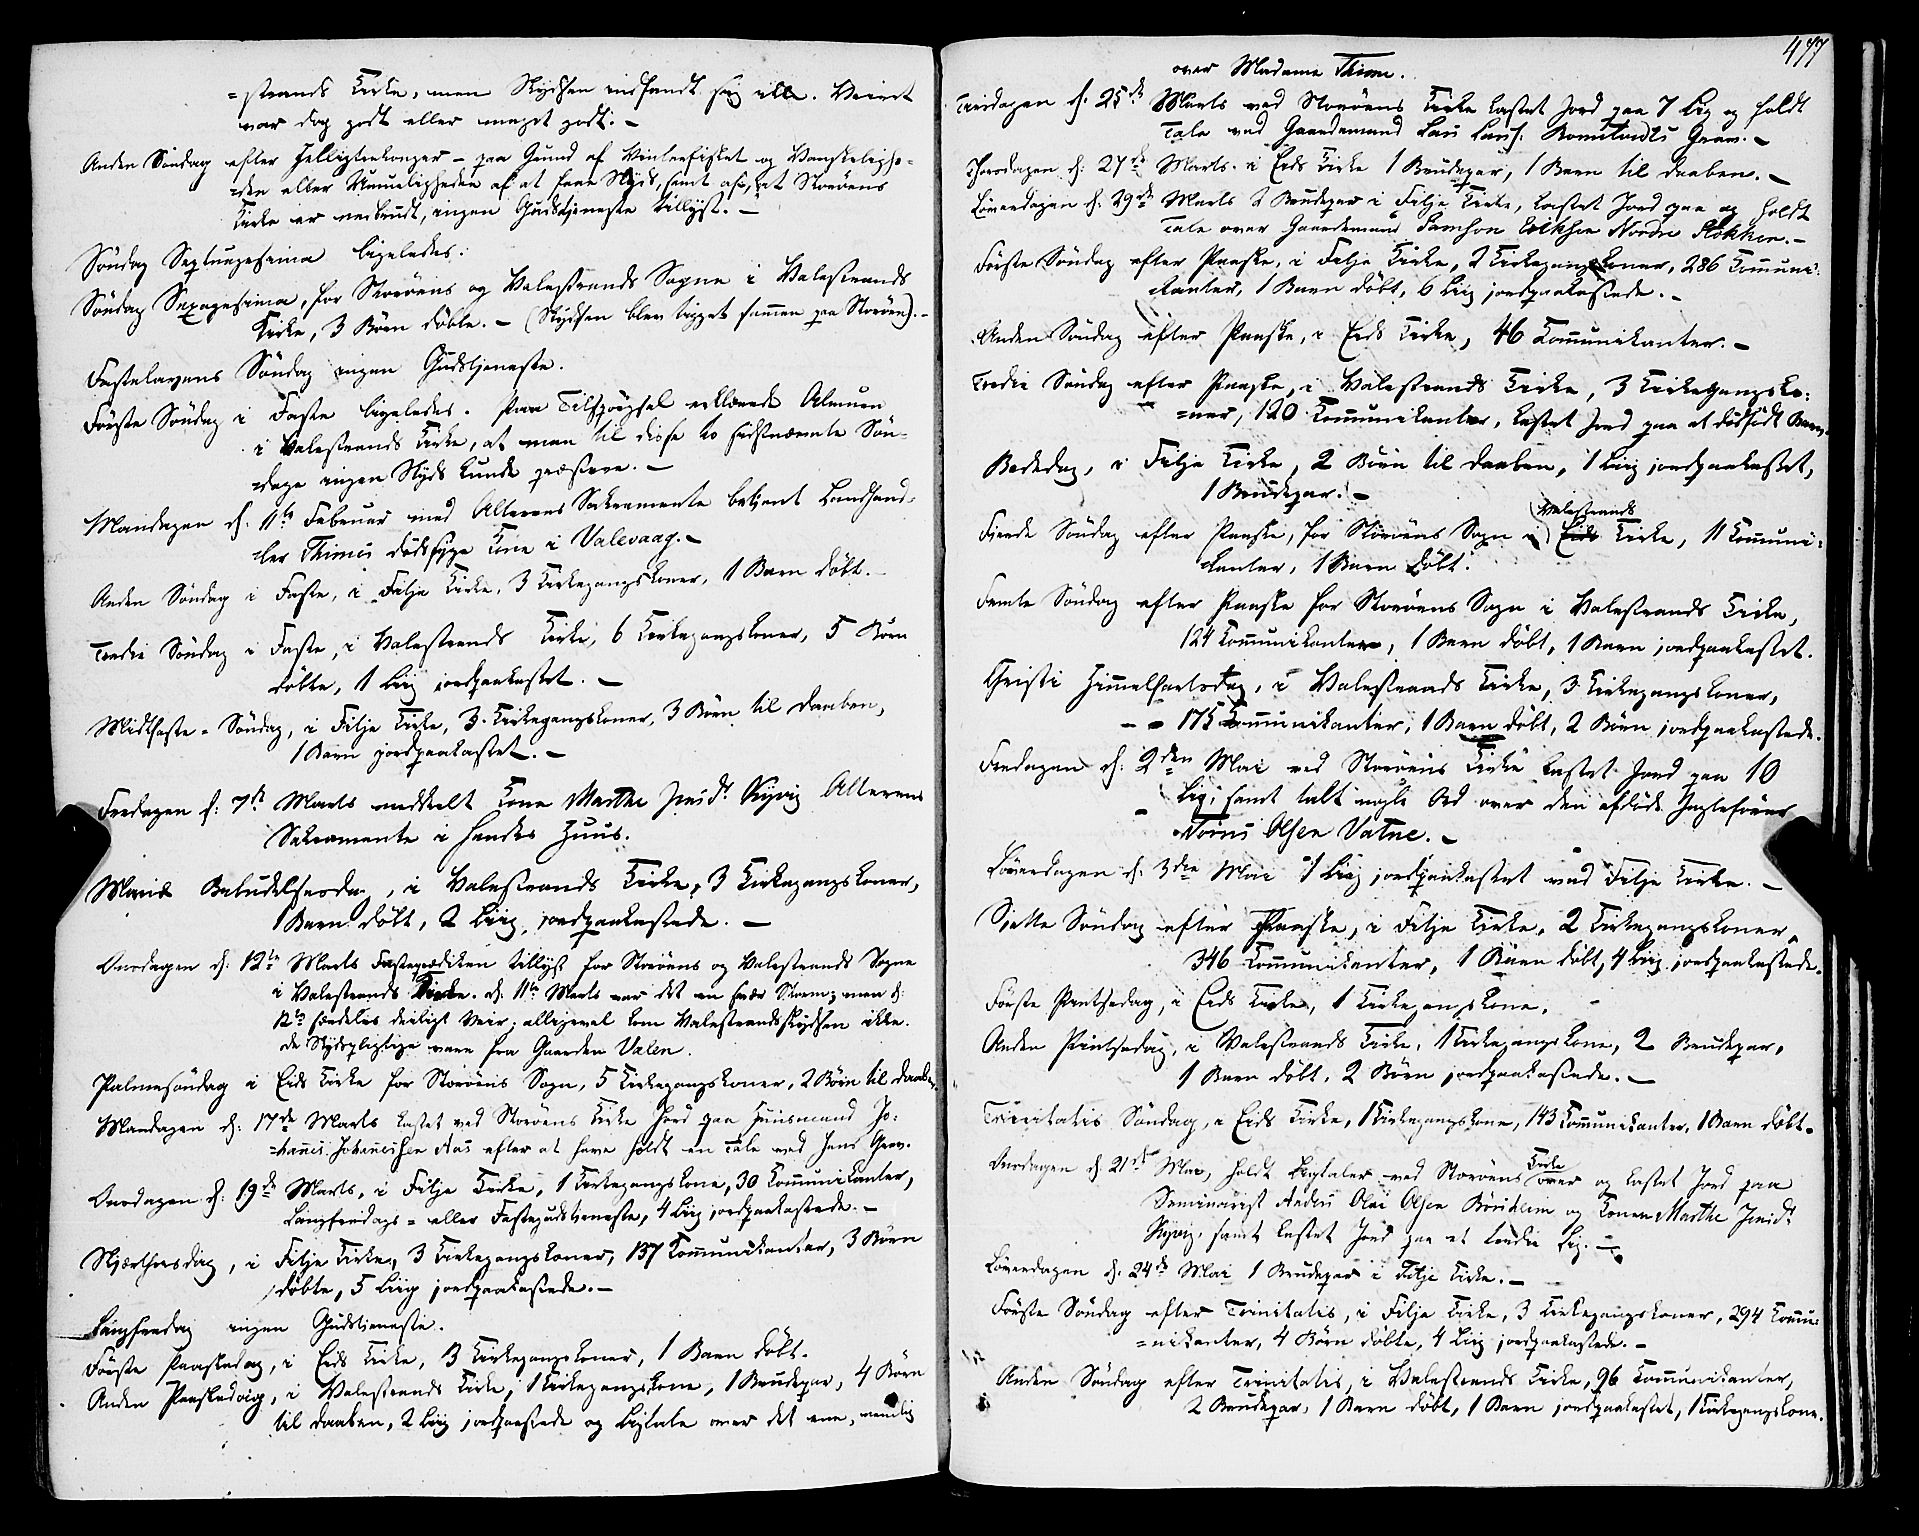 =strands Kirke, men Skydsen indfandt sig ikke. Veiret
var dog godt eller meget godt. –
Anden Søndag efter Helligtrekonger – paa Grund af Vinterfisket og Vanskelighe-
=den eller Umueligheden af at faae Skyds, samt af, at Storøens
Kirke er nedbrudt, ingen Gudstjeneste tillyst. –
Søndag Septuagesima ligeledes.
Søndag Sexagesima, for Storøens og Valestrands Sogne i Valestrands
Kirke, 3 Børn døbte. – (Skydsen blev bigget sammen paa Storøen). –
Fastelavens Søndag ingen Gudstjeneste.
Første Søndag i Faste ligeledes. Paa Tilspørgsel erklærede Almuen
i Valestrands Kirke, at man til disse to sidstnævnte Søn-
=dage ingen Skyds kunde præstere. –
Mandagen d: 11te Februar med Alterens Sakramente betjent Landhand-
=ler Thimes dødssyge Kone i Valevaag. –
Anden Søndag i Faste, i Fitje Kirke, 3 Kirkegangskoner, 1 Barn døbt. –
Tredie Søndag i Faste, i Valestrands Kirke, 6 Kirkegangskoner, 5 Børn
døbte, 1 Liig jordpaakastet. –
Midtfaste = Søndag, i Fitje Kirke, 3 Kirkegangskoner, 3 Børn til Daaben,
1 Barn jordpaakastet. –
Fredagen d: 7de Marts meddeelt Kone Marthe Jensdr Rysvig Alterens
Sakramente i hendes Huus.
Mariæ Bebudelsesdag, i Valestrands Kirke, 3 Kirkegangskoner,
1 Barn døbt, 2 Liig jordpaakastede. –
Onsdagen d: 12te Marts Fasteprædiken tillyst for Storøens og Valestrands Sogne
i Valestrands Kirke. d: 11te Marts var det en svær Storm; men d:
12te særdeles deiligt Veir; alligevel kom Valestrandsskydsen ikke.
De Skydspligtige vare fra Gaarden Valen.
Palmesøndag i Eids Kirke for Storøens Sogn, 5 Kirkegangskoner, 2 Børn til Daaben.
Mandagen d: 17de Marts kastet ved Storøens Kirke Jord paa Huusmand Jo-
=hannes Johannessen Aas efter at have holdt en Tale ved hans Grav.
Onsdagen d: 19de Marts, i Fitje Kirke, 1 Kirkegangskone, 30 Kommunikanter,
Langfredags = eller Fastegudstjeneste, 4 Liig jordpaakastede. –
Skjærthorsdag, i Fitje Kirke, 3 Kirkegangskoner, 137 Kommunikanter, 3 Børn
døbte, 5 Liig jordpaakastede. –
Langfredag ingen Gudstjeneste.
Første Paaskedag, i Eids Kirke, 3 Kirkegangskoner, 1 Barn døbt.
Anden Paaskedag, i Valestrands Kirke, 1 Kirkegangskone, 1 Brudepar, 4 Børn
til Daaben, 2 Liig jordpaastede og Ligtale over det ene, nemlig
477
over Madame Thime.
Tirsdagen d: 25de Marts ved Storøens Kirke kastet Jord paa 7 Lig og holdt
Tale ved Gaardemand Lars Lars. Grav. –
Thorsdagen d: 27de Marts i Eids Kirke 1 Brudepar, 1 Barn til Daaben. –
Løverdagen d: 29de Marts 2 Brudepar i Fitje Kirke, kastet Jord paa og holdt
Tale over Gaardemand Samson Eriksen Nordre Støkken. –
Første Søndag efter Paaske, i Fitje Kirke, 2 Kirkegangskoner, 286 Kommuni-
=kanter, 1 Barn døbt, 6 Liig jordpaakastede. –
Anden Søndag efter Paaske, i Eids Kirke, 46 Kommunikanter. –
Tredie Søndag efter Paaske, i Valestrands Kirke, 3 Kirkegangsko-
=ner, 120 Kommunikanter, kastet Jord paa et dødfødt Barn.
Bededag, i Fitje Kirke, 2 Børn til Daaben, 1 Liig jordpaakastet,
1 Brudepar. –
Fjerde Søndag efter Paaske, for Storøens Sogn i Valestrands Eids Kirke, 11 Kommuni-
=kanter, 1 Barn døbt.
Femte Søndag efter Paaske for Storøens Sogn i Valestrands Kirke,
124 Kommunikanter, 1 Barn døbt, 1 Barn jordpaakastet.
Christi Himmelfartsdag, i Valestrands Kirke, 3 Kirkegangskoner,
175 Kommunikanter, 1 Barn døbt, 2 Børn jordpaakastede.
Fredagen d: 2den Mai ved Storøens Kirke kastet Jord paa 10
Lig, samt talt nogle Ord over den afdøde
Olsen Vatne. –
Løverdagen d: 3die Mai 1 Liig jordpaakastet ved Fitje Kirke. –
Sjette Søndag efter Paaske, i Fitje Kirke, 2 Kirkegangskoner,
346 Kommunikanter, 1 Barn døbt, 4 Liig jordpaakastede.
Første Pintsedag, i Eids Kirke, 1 Kirkegangskone.
Anden Pintsedag, i Valestrands Kirke, 1 Kirkegangskone, 2 Brudepar,
1 Barn døbt, 2 Børn jordpaakastede. –
Trinitatis Søndag, i Eids Kirke, 1 Kirkegangskone, 143 Kommunikanter, 1 Barn døbt.
Onsdagen d: 21de Mai, holdt Ligtaler ved Storøens Kirke over og kastet Jord paa
Seminarist Anders Olai Olsen Børsheim og Konen Marthe Jensdr
Rysvig, samt kastet Jord paa et tredie Lig. –
Løverdagen d: 24de Mai 1 Brudepar i Fitje Kirke. –
Første Søndag efter Trinitatis, i Fitje Kirke, 3 Kirkegangskoner, 294 Kommu-
=nikanter, 4 Børn døbte, 4 Liig jordpaakastede. –
Anden Søndag efter Trinitatis, i Valestrands Kirke, 96 Kommunikanter,
2 Brudepar, 1 Barn døbt, 1 Barn jordpaakastet, 1 Kirkegangskone.